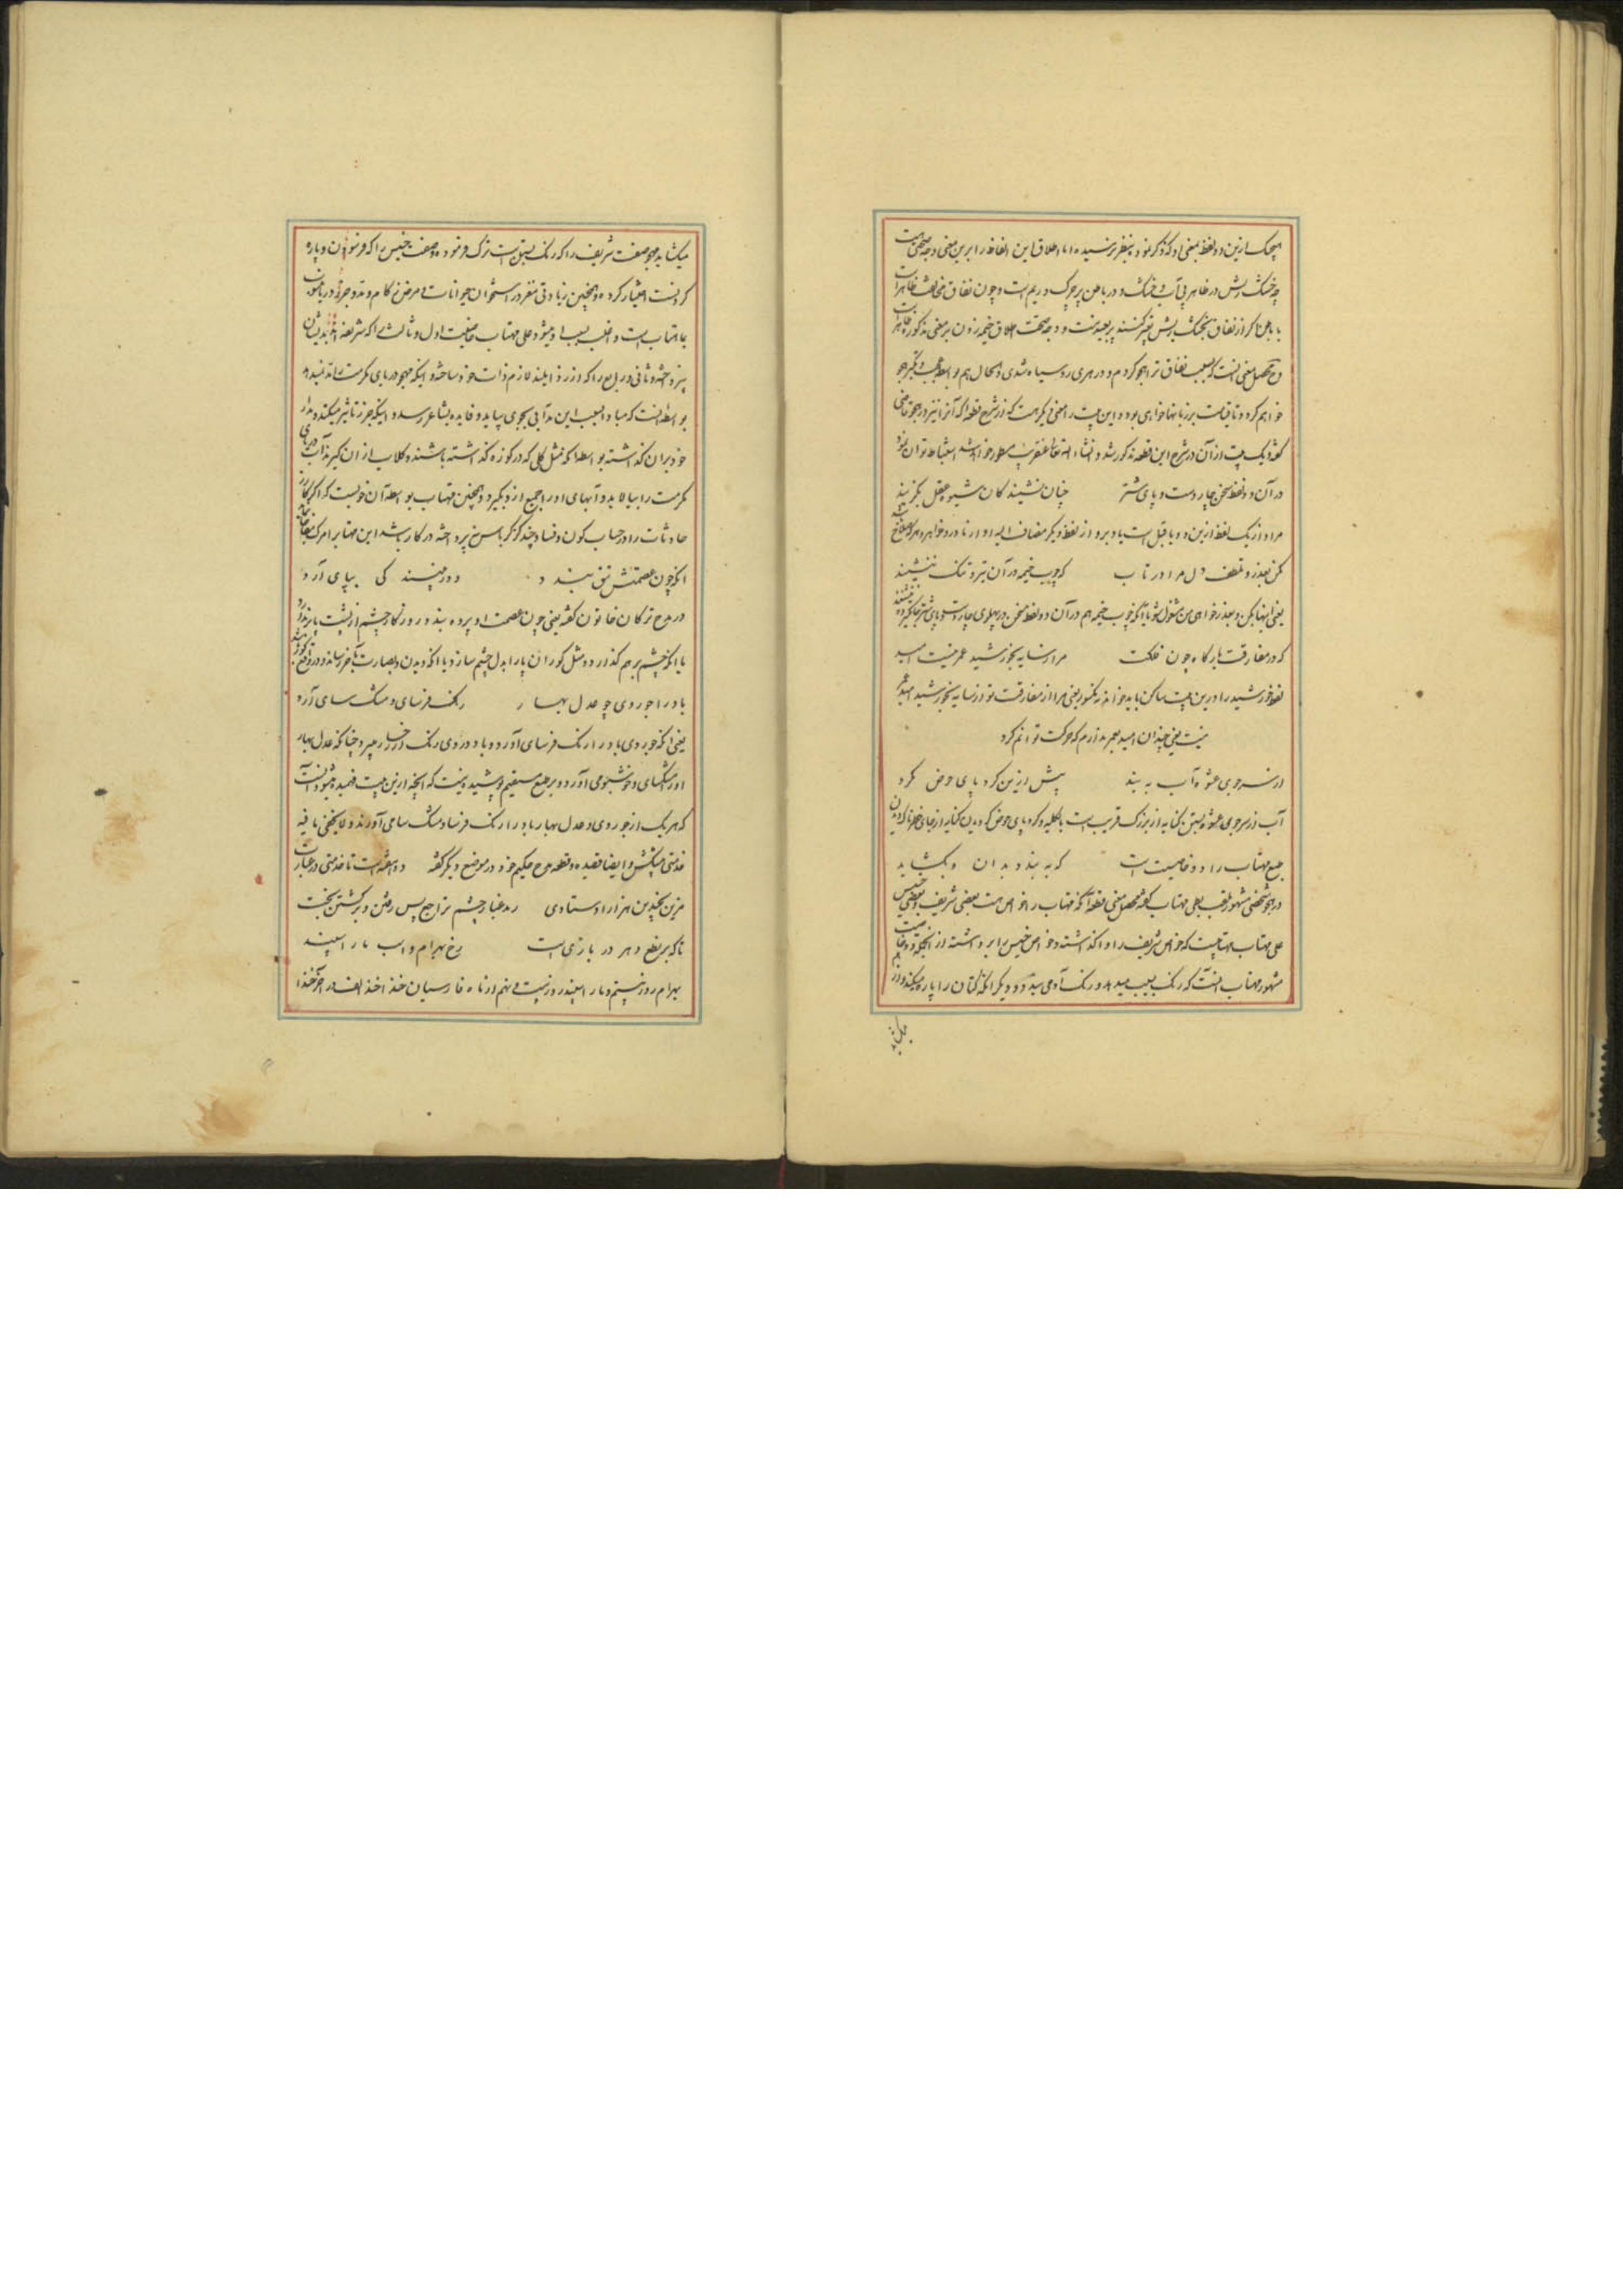 هیچیک ازین دو لفظ بمعنی او که ذکر نمود بنظر نرسیده اما اطلاق این الفاظ را برین معنی وجه صحتی هست
چه خشک ریش در ظاهر بی آب و خشک و در باطن پر چرک و ریم است و چون نفاق مخالفت ظاهر است
با باطن اگر از نفاق بخشک ریش تعبیر کنند پر بعید نیست و وجه صحت اطلاق خیمه زدن بر معنی مذکور ظاهر است
و محصل معنی آنست که بسبب نفاق ترا هجو کردم و در هری روسیاه شدی و الحال هم بواسطه دیگر هجو
خواهم کرد و تا قیامت بر زبانها خواهی بود و این بیت را معنی دیگر هست که از شرح قطعه که آنرا نیز در هجو قاضی
گفته و یک بیت از آن در شرح این قطعه مذکور شد و انشاء الله تعالی عنقریب مسطور خواهد شد استنباط توان نمود
در آن دو لفظ سخن چار دست و پای شتر چنان نشیند کان شیو عقل بگزیند
مراد از یک لفظ ازین دو و با قبل است یا و برو از لفظ دیگر مضاف الیه او
مکن بعذر و تلطف دل مرا در تاب که چوب خیمه در آن نیز و تنگ ننشیند
یعنی اینها مکن و بعذر خواهی من مشغول شو تا آنکه چوب خیمه هم در آن دو لفظ سخن در پهلوی چار دست و پای شتر جا نگیرد
که در مفارقت بارگاه چون فلکت مرا ز سایه بخورشید عمر نیست امید
لفظ خورشید را درین بیت ساکن باید خواند نه مکسور یعنی مرا از مفارقت تو از سایه بخورشید امید عمر
نیست یعنی چندان امید بعمر ندارم که حرکت توانم کرد
از سر جوی عشوه آب به بند پیش ازین گرد پای حوض مگرد
آب از سر جوی عشوه بستن کنایه از بزرگ فریب است بالکلیه و گرد پای حوض گردیدن کنایه از جای خطرناک گردیدن
جمیع مهتاب را دو خاصیت است که به بندد بدان و بگشاید
در هجو شخصی مشهور ملقب بعلی مهتاب گفته محصل معنی قطعه آنکه مهتاب را خواص هست بعضی شریف و بعضی خسیس
علی مهتاب مهتابیست که خواص شریف را وا گذاشته و خواص خسیس را برداشته از آنجمله دو خاصیت
مشهور مهتاب آنست که رنگ بسیب میدهد و رنگ آدمی میبندد و دیگر آنکه کتان را پاره میکند و از هم
میگشاید
میگشاید هجو صفت شریف را که رنگ بستن است ترک فرموده و صفت خسیس را که فرسودن و پاره
کردنست اختیار کرده و همچنین زیادتی مغز در استخوان حیوانات و مرض زکام و مد و جزر دریا منسوب
بماهتاب است و اغلب بسبب او میشود و علی مهتاب خاصیت اول و ثالث را که شریفند
و ثانی و رابع را که ارذل و اینند لازم ذات خود ساخته و اینکه هجو دریای مکرمت نمیدهد
بواسطه آنست که مبادا بسبب این مد آبی بجوی بیاید و فایده بشاعر رسد و اینکه جزر تاثیر میکند و مدار
خود بران گذاشته بواسطه آنکه مثل گلی که در کوزه گذاشته باشند و گلاب از ان گیرند آب دریای
مکرمت را بیالاید و آبهای او را جمیع ازو بگیرد و همچنین مهتاب بواسطه آن خوبست که اگر کازر
حادثات را در حساب کون و فساد چند گزکرباس نپرداخته در کار باشد این مهتاب بر امرگ مفاجا
آنکه چون عصمتش تتق بندد دور بیند کی بیای آرد
در مدح ترکان خاتون گفته یعنی چون عصمت او پرده بندد روزگار چشم از پشت پا برندارد
یا آنکه چشم بر هم گذارد و مثل کوران پا را بدل چشم سازد یا آنکه دیدن و بصارت
باد را جور دی چو عدل بهار رنگ فرسای و مشک سای آرد
یعنی آنکه جور دی باد را رنگ فرسای آورد و باد در دی رنگ از رخسار میبرد چنانکه عدل بهار
او را مشکسای و خوشبو می آورد و بر طبع مستقیم پوشیده نیست که آنچه ازین بیت فهمیده میشود آنست
که هر یک از جور دی و عدل بهار باد را رنگ فرسا و مشک سا می آورند و لا یخفی ما فیه
خدمتی پیشکش و ایضا قصیده و قطعه مدح حکیم خود در موضع دیگر گفته
مزین بچندین هزار اوستادی رمد غبار چشم تراجع پس رفتن و برگشتن بخت
تا که بر نطع دهر در بازی است رخ بهرام و اسب مار اسپند
بهرام روز بیستم و مار اسپند روز بیست و نهم از ماه فارسیان خذ اخذ الف در آخر خذا